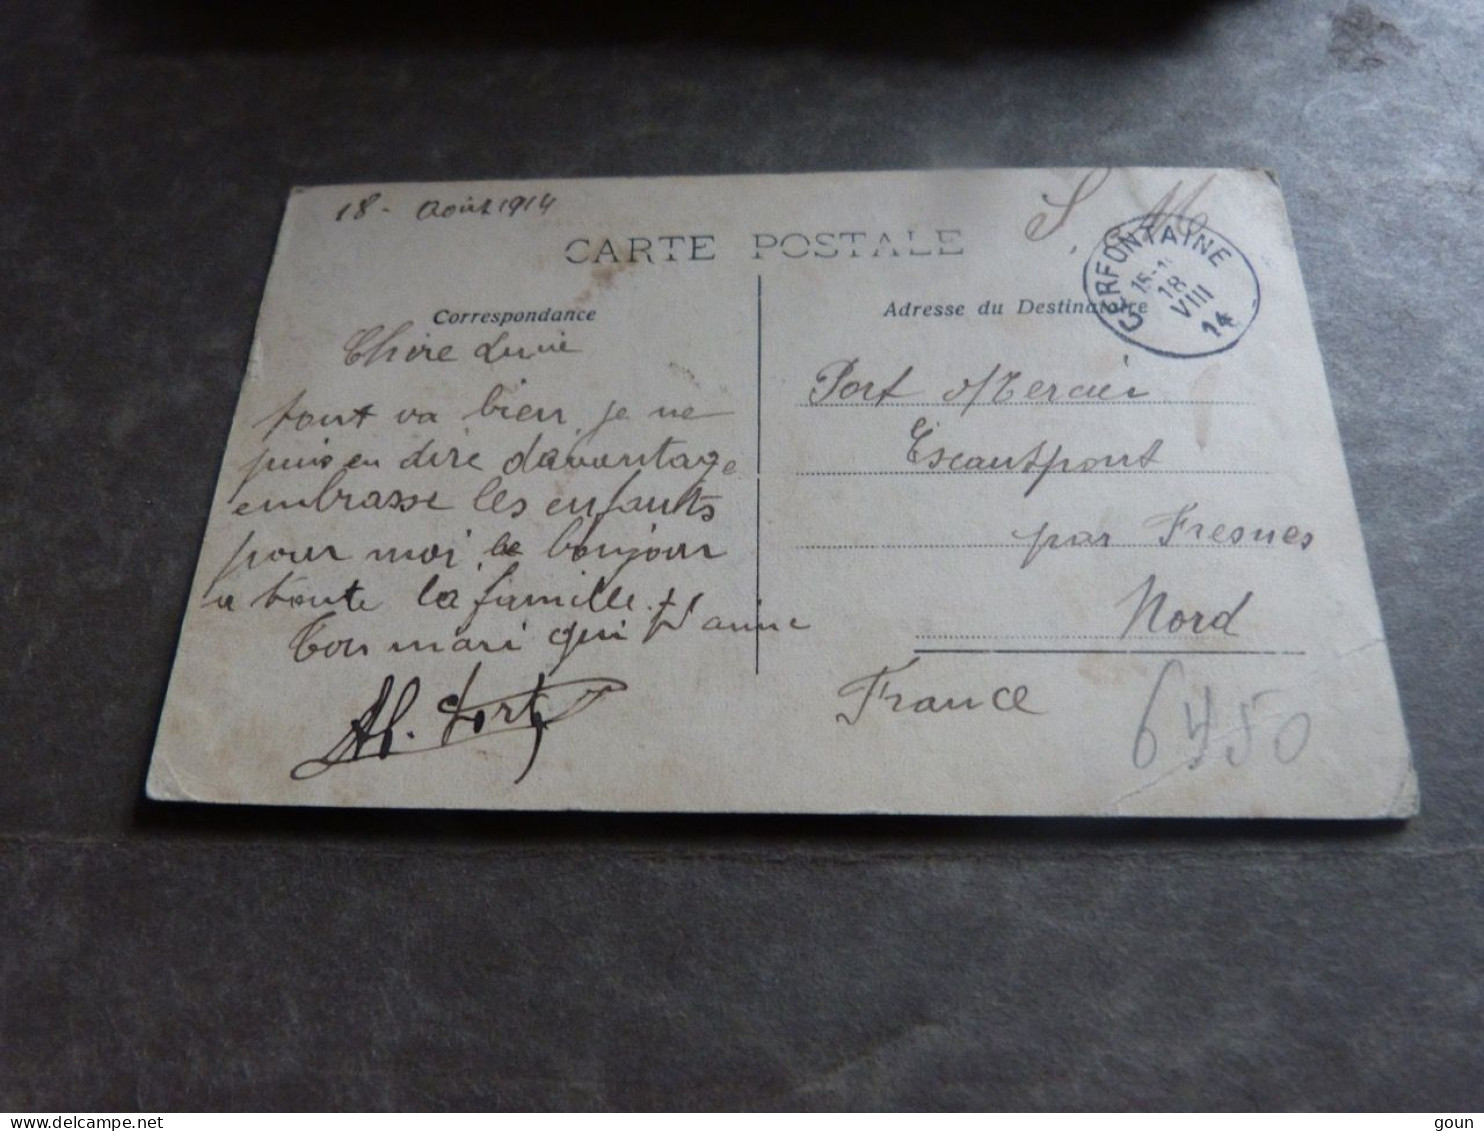 18 - Août 1914
S. M
CARTE POSTALE
CERFONTAINE
18
VIII
14
Correspondance
Adresse du Destinataire
Chère Lucie
tout va bien, je ne
puis en dire davantage
embrasse les enfants
pour moi le bonjour
a toute la famille.
Ton mari qui t'aime
Port Mercier
Escautpont
par Fresnes
Nord
France
6450
goun